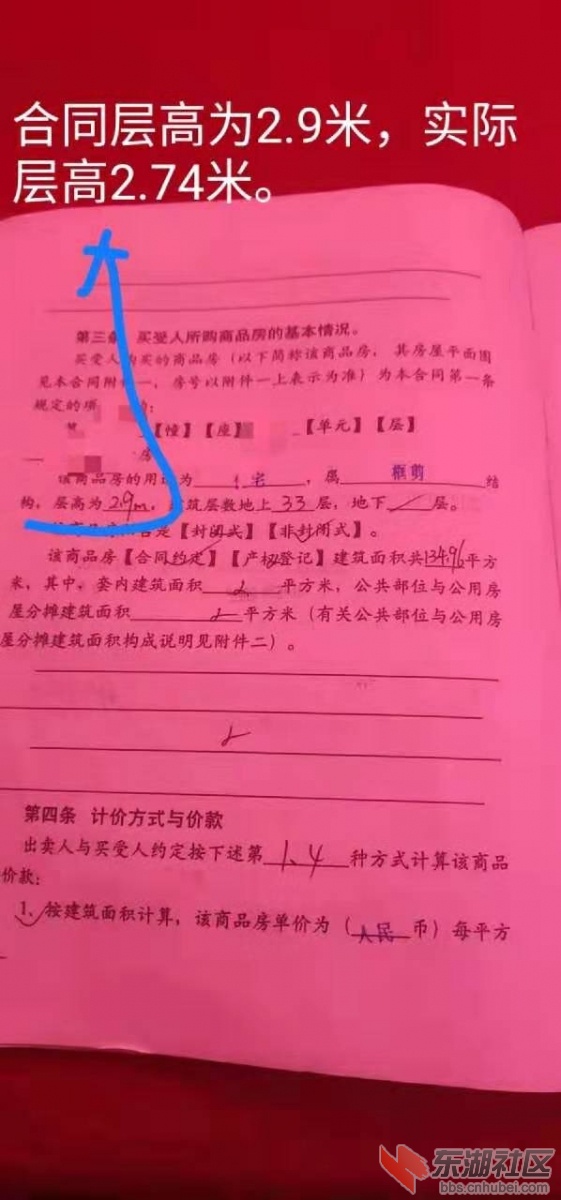 合同层高为2.9米，实际
层高2.74米。
第三条 买受人所购商品房的基本情况。
买受人购买的商品房（以下简称该商品房，其房屋平面图
见本合同附件一，房号以附件一上表示为准）为本合同第一条
规定的项
【幢】【座】 【单元】【层】
房
该商品房的用途为 宅 ，属 框剪 结
构，层高为2.9m，建筑层数地上33层，地下 层。
【封闭式】【非封闭式】。
该商品房【合同约定】【产权登记】建筑面积共134.96平方
米，其中，套内建筑面积 平方米，公共部位与公用房
屋分摊建筑面积 平方米（有关公共部位与公用房
屋分摊建筑面积构成说明见附件二）。
第四条 计价方式与价款
出卖人与买受人约定按下述第1、4种方式计算该商品
价款：
1、按建筑面积计算，该商品房单价为（人民币）每平方
东湖社区
bbs.cnhubei.com